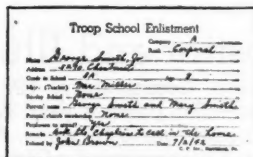 Troop School Enlistment
Company A
Rank Corporal
Name George Smith, Jr.
Address 4290 Chestnut
Grade in School 4A Age 9
Mgr. (Teacher) Mrs. Miller
Sunday School None
Parents' name George Smith and Mary Smith
Parents' church membership None
Permission to appear yes
Remarks Ask the Chaplain to call in the home
Enlisted by John Brown Date 7/2/42